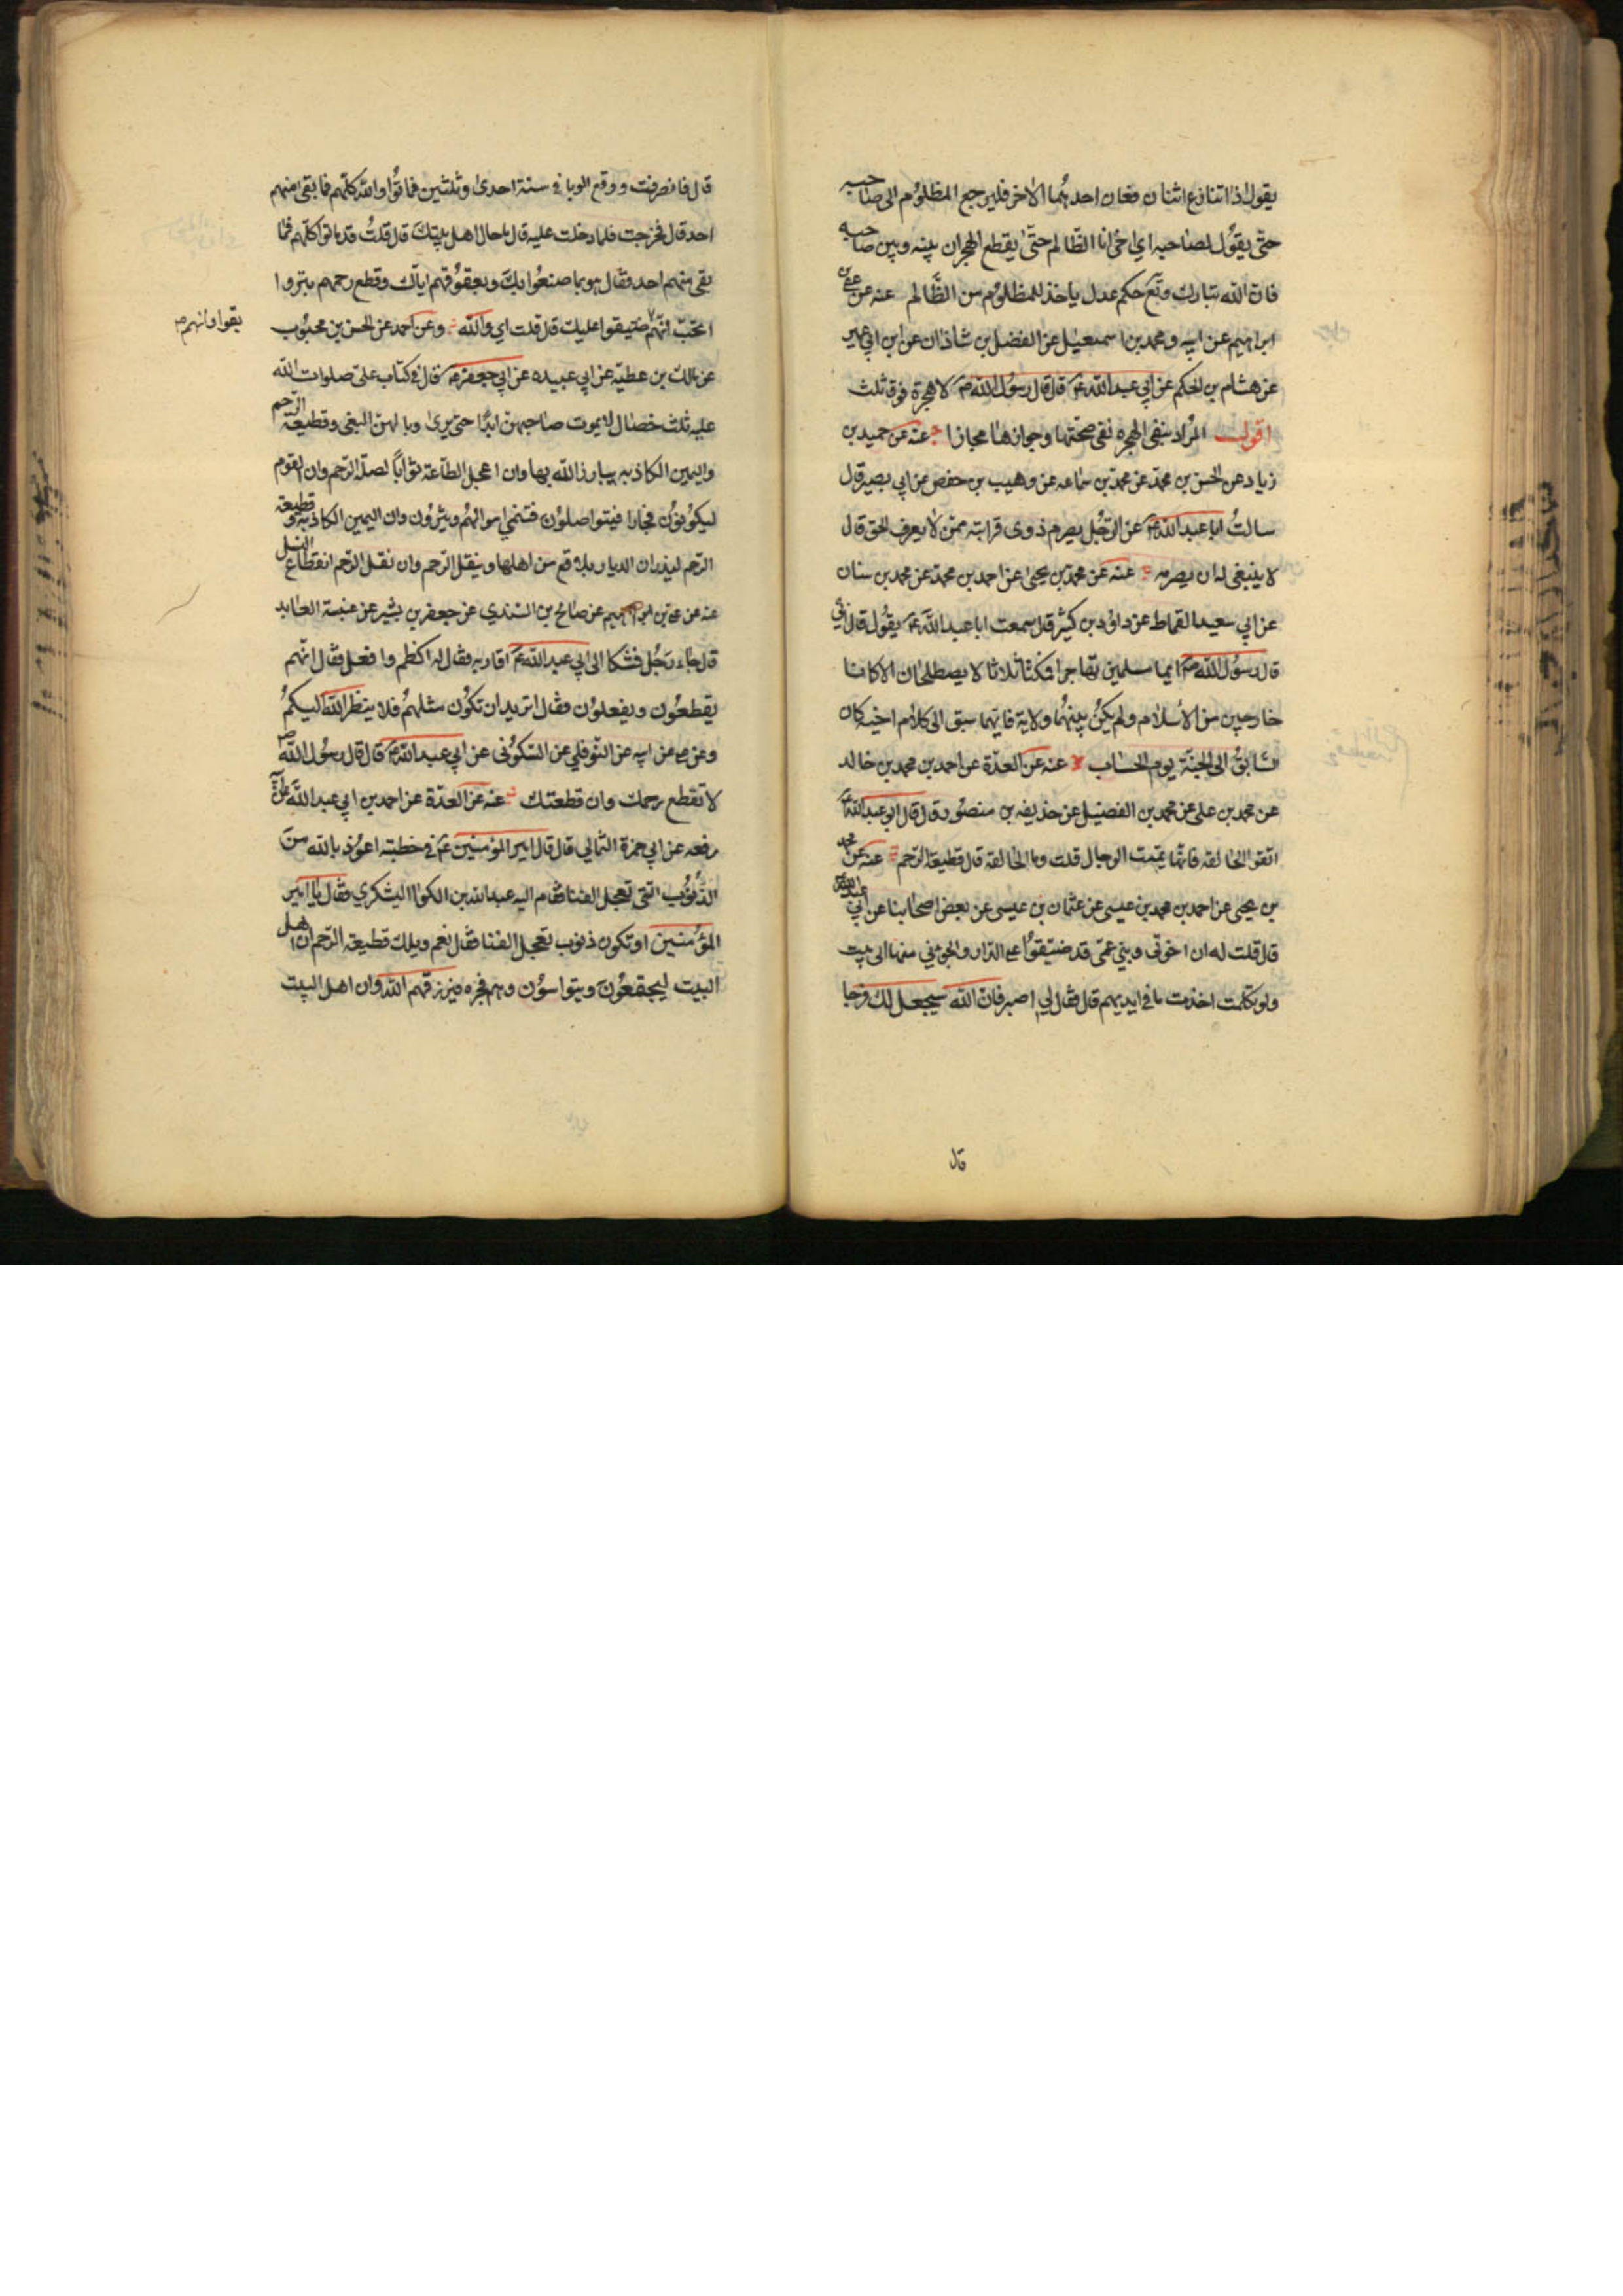 يقول اذا تنازع اثنان فعان احدهما الاخر فليرجع المظلوم الى صاحبه
حتى يقول لصاحبه اي اخي انا الظالم حتى يقطع الهجران بينه وبين صاحبه
فان الله تبارك وتع حكم عدل ياخذ للمظلوم من الظالم عنه عن علي بن
ابراهيم عن ابيه و محمد بن اسمعيل عن الفضل بن شاذان عن ابن ابي عمير
عن هشام بن الحكم عن ابي عبد الله ع قال قال رسول الله ص لا هجرة فوق ثلث
اقول المراد بنفي الهجره نفي صحتها وجوازها مجازا عنه عن حميد بن
زياد عن الحسن بن محمد عن محمد بن سماعه عن وهيب بن حفص عن ابي بصير قال
سالت ابا عبد الله ع عن الرجل يصرم ذوى قرابته ممن لا يعرف الحق قال
لا ينبغى له ان يصرمه عنه عن محمد بن يحيى عن احمد بن محمد عن محمد بن سنان
عن ابي سعيد القماط عن داود بن كثير قال سمعت ابا عبد الله ع يقول قال ابي
قال رسول الله ص ايما مسلمين تهاجرا فمكثا ثلاثا لا يصطلحان الا كانا
خارجين من الاسلام ولم يكن بينهما ولاية فايهما سبق الى كلام اخيه كان
السابق الى الجنة يوم الحساب عنه عن العدة عن احمد بن محمد بن خالد
عن محمد بن على عن محمد بن الفضيل عن حذيفه بن منصور قال قال ابو عبد الله ع
اتقوا الحالقه فانها تميت الرجال قلت وما الحالقه قال قطيعة الرحم عنه عن محمد
بن يحيى عن احمد بن محمد بن عيسى عن عثمان بن عيسى عن بعض اصحابنا عن ابي عبد الله ع
قال قلت له ان اخوتى وبني عمى قد ضيقوا على الدار والجؤني منها الى بيت
ولو تكلمت اخذت ما في ايديهم قال فقال لي اصبر فان الله سيجعل لك فرجا
قال
قال فانصرفت ووقع الوبا في سنة احدى وثلثين فماتوا والله كلهم فما بقى منهم
احد قال فخرجت فلما دخلت عليه قال ما حال اهل بيتك قال قلت قد ماتوا كلهم فما
بقى منهم احد فقال هو بما صنعوا بك وبعقوقهم اياك وقطع رحمهم بتروا
اتحب انهم ضيقوا عليك قال قلت اي والله وعن احمد عن الحسن بن محبوب
بقوا وانهم ص
عن مالك بن عطيه عن ابي عبيده عن ابي جعفر ع قال في كتاب على صلوات الله
عليه ثلث خصال لا يموت صاحبهن ابدا حتى يرى وبالهن البغى وقطيعة الرحم
واليمين الكاذبه يبارز الله بها وان اعجل الطاعة ثوابا لصلة الرحم وان القوم
ليكونون فجارا فيتواصلون فتنمي اموالهم ويثرون وان اليمين الكاذبة وقطيعة
الرحم ليذران الديار بلاقع من اهلها وينقل الرحم وان نقل الرحم انقطاع النسل
عنه عن علي بن ابراهيم عن صالح بن السندي عن جعفر بن بشير عن عنبسة العابد
قال جاء رجل فشكا الى ابي عبد الله ع اقاربه فقال له اكظم وافعل فقال انهم
يقطعون ويفعلون فقال اتريد ان تكون مثلهم فلا ينظر الله اليكم
وعن علي عن ابيه عن النوفلي عن السكونى عن ابي عبد الله ع قال قال رسول الله ص
لا تقطع رحمك وان قطعتك عنه عن العدة عن احمد بن ابي عبد الله عن ابيه
رفعه عن ابي حمزة الثمالي قال قال امير المؤمنين ع في خطبته اعوذ بالله من
الذنوب التى تعجل الفنا فقام اليه عبد الله بن الكوا اليشكري فقال يا امير
المؤمنين او تكون ذنوب تعجل الفنا فقال نعم ويلك قطيعة الرحم ان اهل
البيت ليجتمعون ويتواسون وهم فجره فيرزقهم الله وان اهل البيت